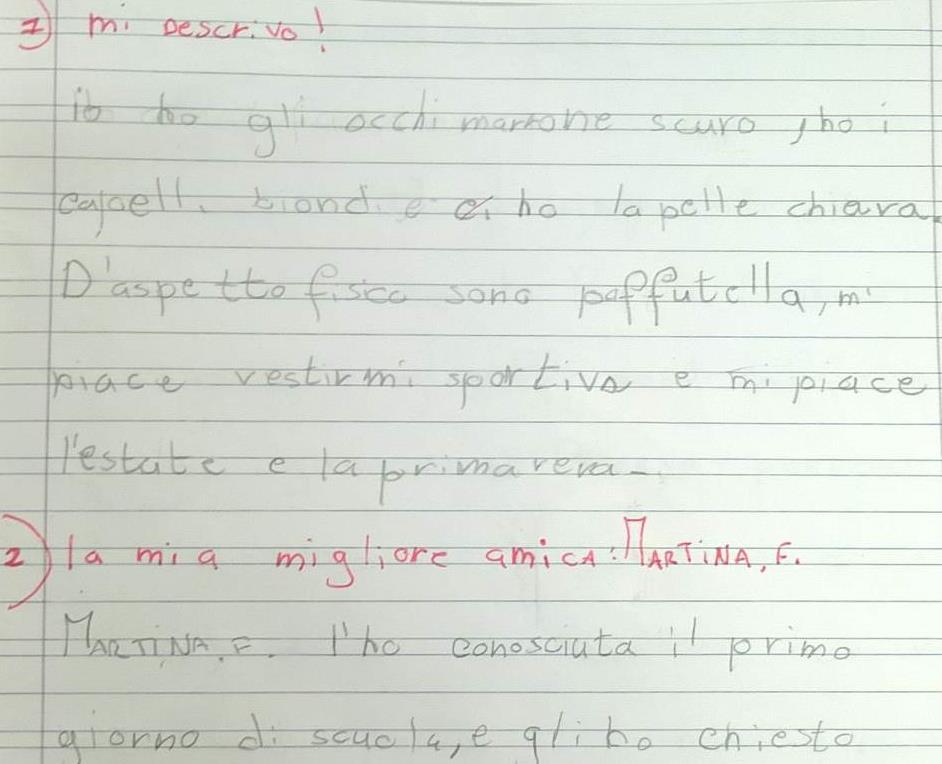 1) mi Descrivo!
io ho gli occhi marrone scuro, ho i
capelli biondi e ho la pelle chiara.
D'aspetto fisico sono paffutella, mi
piace vestirmi sportiva e mi piace
l'estate e la primavera-
2) la mia migliore amica: MARTINA, F.
MARTINA, F. l'ho conosciuta il primo
giorno di scuola, e gli ho chiesto